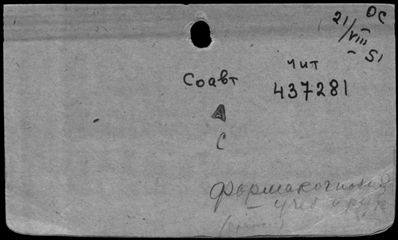 ОС
21/VIII – 51
Соавт
чит
437281
А
С
Фармакогнозия
– учеб